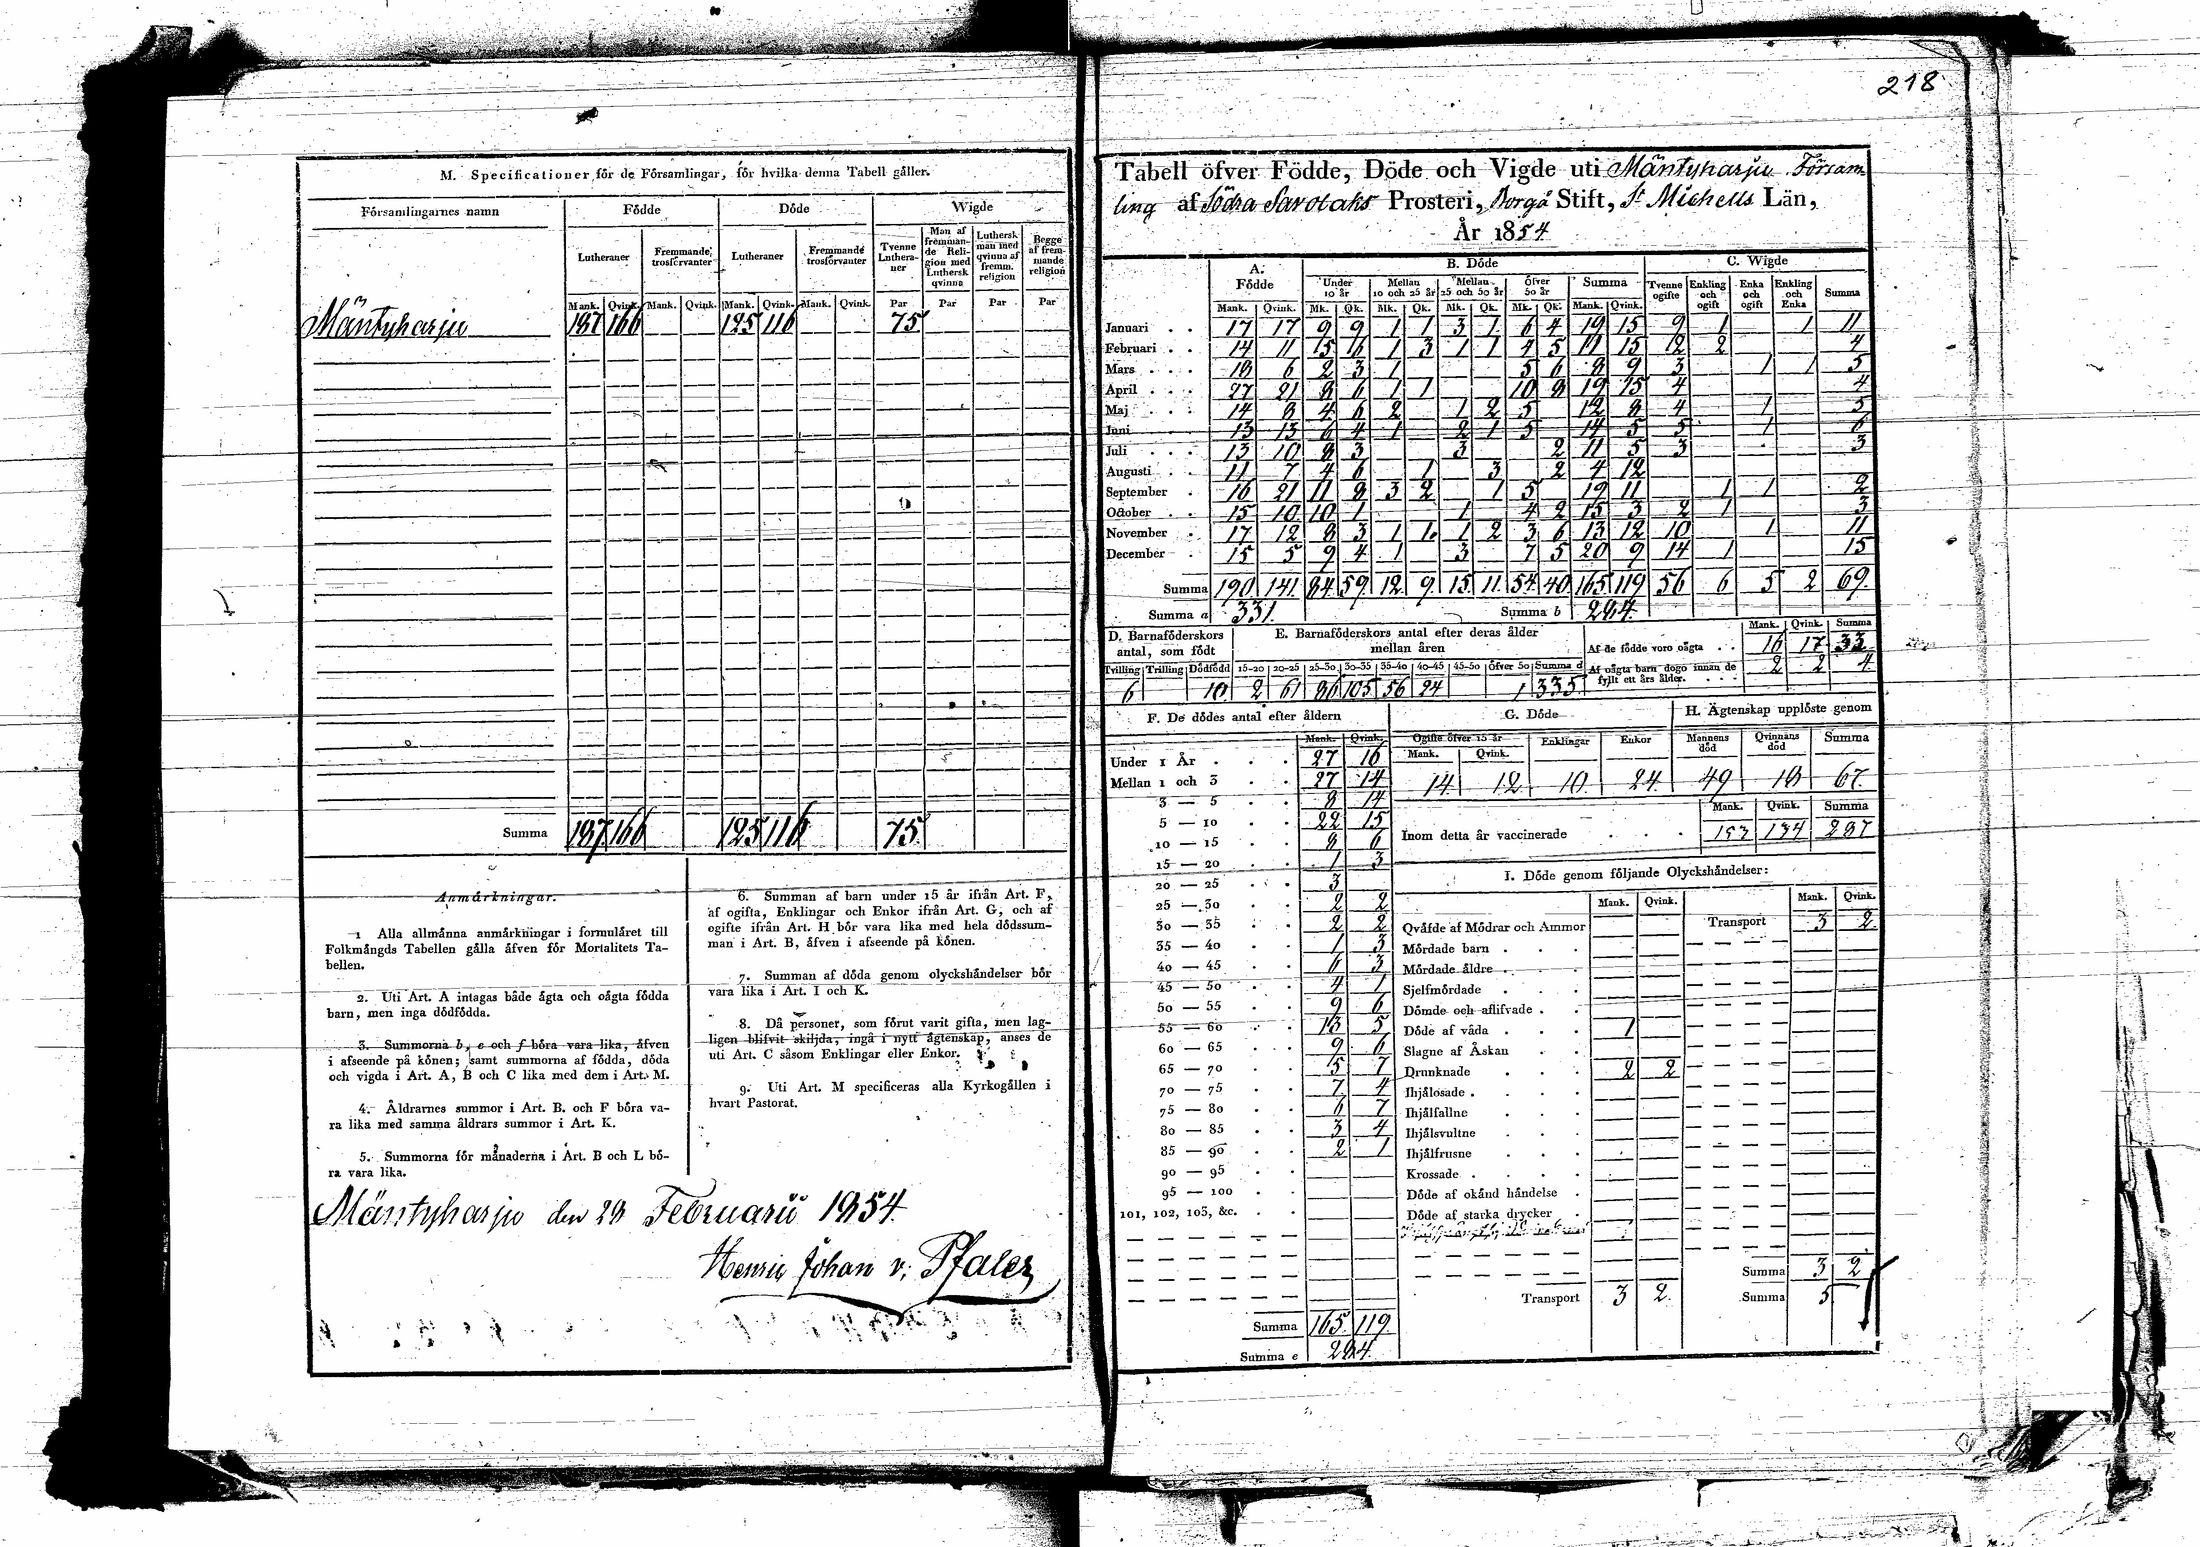 218
M. Specificationer för de Församlingar, för hvilka denna Tabell gäller.
Församlingarnes namn Födde Döde Wigde
Lutheraner Fremmande trosförvanter Lutheraner Fremmande trosförvanter Tvenne Lutheraner Man af fremmande Religion med Luthersk qvinna Luthersk man med qvinna af fremm. religion Begge af fremmande religion
Mank. Qvink. Mank. Qvink. Mank. Qvink. Mank. Qvink. Par Par Par Par
Mäntyharju 187 166 125 116 75
Summa 187 166 125 116 75.
Anmärkningar.
1 Alla allmänna anmärkningar i formuläret till
Folkmängds Tabellen gälla äfven för Mortalitets Ta-
bellen.
2. Uti Art. A intagas både ägta och oägta födda
barn, men inga dödfödda.
3. Summorna b, e och f böra vara lika, äfven
i afseende på könen; samt summorna af födda, döda
och vigda i Art. A, B och C lika med dem i Art. M.
4. Åldrarnes summor i Art. B. och F böra va-
ra lika med samma åldrars summor i Art. K.
5. Summorna för månaderna i Art. B och L bö-
ra vara lika.
6. Summan af barn under 15 år ifrån Art. F,
af ogifta, Enklingar och Enkor ifrån Art. G, och af
ogifte ifrån Art. H bör vara lika med hela dödssum-
man i Art. B, äfven i afseende på könen.
7. Summan af döda genom olyckshändelser bör
vara lika i Art. I och K.
8. Då personer, som förut varit gifta, men lag-
ligen blifvit skiljda, ingå i nytt ägtenskap, anses de
uti Art. C såsom Enklingar eller Enkor.
9. Uti Art. M specificeras alla Kyrkogällen i
hvart Pastorat.
Mäntyharju den 28 Februarii 1854.
Henric Johan v. Pfaler
Tabell öfver Födde, Döde och Vigde uti Mäntyharju Försam
ling af Södra Savolaks Prosteri, Borgå Stift, St Michells Län,
År 1854
A. Födde B. Döde C. Wigde
Under 10 år Mellan 10 och 25 år Mellan 25 och 50 år Öfver 50 år Summa Tvenne ogifte Enkling och ogift Enka och ogift Enkling och Enka Summa
Mank. Qvink. Mk. Qk. Mk. Qk. Mk. Qk. Mk. Qk. Mank. Qvink.
Januari 17 17 9 9 1 1 3 1 6 4 19 15 9 1 1 11
Februari 14 11 15 16 1 3 1 1 4 5 11 15 12 2 4
Mars 18 6 2 3 1 5 6 8 9 3 1 1 5
April 27 21 8 6 1 1 10 8 19 15 4 4
Maj 14 8 4 6 2 1 2 5 12 8 4 1 5
Juni 13 13 6 4 1 2 1 5 14 5 5 1 6
Juli 13 10 8 3 3 2 11 5 3 3
Augusti 11 7 4 6 1 3 2 4 12
September 16 21 11 8 3 2 1 5 19 11 1 1 2
October 15 10 10 1 1 4 2 15 3 2 1 3
November 17 12 8 3 1 1 1 2 3 6 13 12 10 1 11
December 15 5 9 4 1 3 7 5 20 9 14 1 15
Summa 190 141 84 59 12 9 15 11 54 40 165 119 56 6 5 2 69.
Summa a 331. Summa b 284.
D. Barnaföderskors antal, som födt E. Barnaföderskors antal efter deras ålder mellan åren
Mank. Qvink. Summa
Af de födde voro oägta 16 17 33
Tvilling Trilling Dödfödd 15-20 20-25 25-30 30-35 35-40 40-45 45-50 Öfver 50 Summa d
6 10 2 61 86 105 56 24 1 335
Af oägta barn dogo innan de fyllt ett års ålder. 2 2 4
F. De dödes antal efter åldern
Mank. Qvink.
Under 1 År 27 16
Mellan 1 och 3 27 14
3 — 5 8 14
5 — 10 22 15
10 — 15 8 6
15 — 20 1 3
20 — 25 3
25 — 30 2 2
30 — 35 2 2
35 — 40 1 3
40 — 45 6 3
45 — 50 4 1
50 — 55 9 6
55 — 60 13 5
60 — 65 9 6
65 — 70 5 7
70 — 75 7 4
75 — 80 6 7
80 — 85 3 4
85 — 90 2 1
90 — 95
95 — 100
101, 102, 103, &c.
Summa 165 119.
Summa e 284.
G. Döde H. Ägtenskap upplöste genom
Ogifte öfver 15 år Enklingar Enkor Mannens död Qvinnans död Summa
Mank. Qvink.
14 12 10 24 49 18 67.
Mank. Qvink. Summa
Inom detta år vaccinerade 153 134 287
I. Döde genom följande Olyckshändelser:
Mank. Qvink. Mank. Qvink.
Qväfde af Mödrar och Ammor Transport 3 2
Mördade barn
Mördade äldre
Sjelfmördade
Dömde och aflifvade
Döde af våda 1
Slagne af Åskan
Drunknade 2 2
Ihjälosade
Ihjälfallne
Ihjälsvultne
Ihjälfrusne
Krossade
Döde af okänd händelse
Döde af starka drycker
Summa 3 2
Transport 3 2. Summa 5